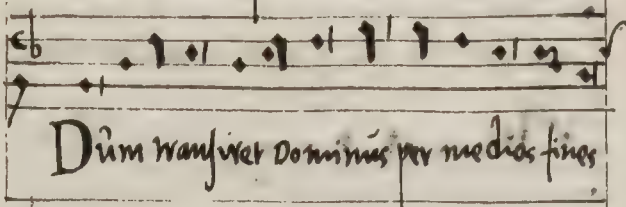 Dúm transiret Dominús per medios fines